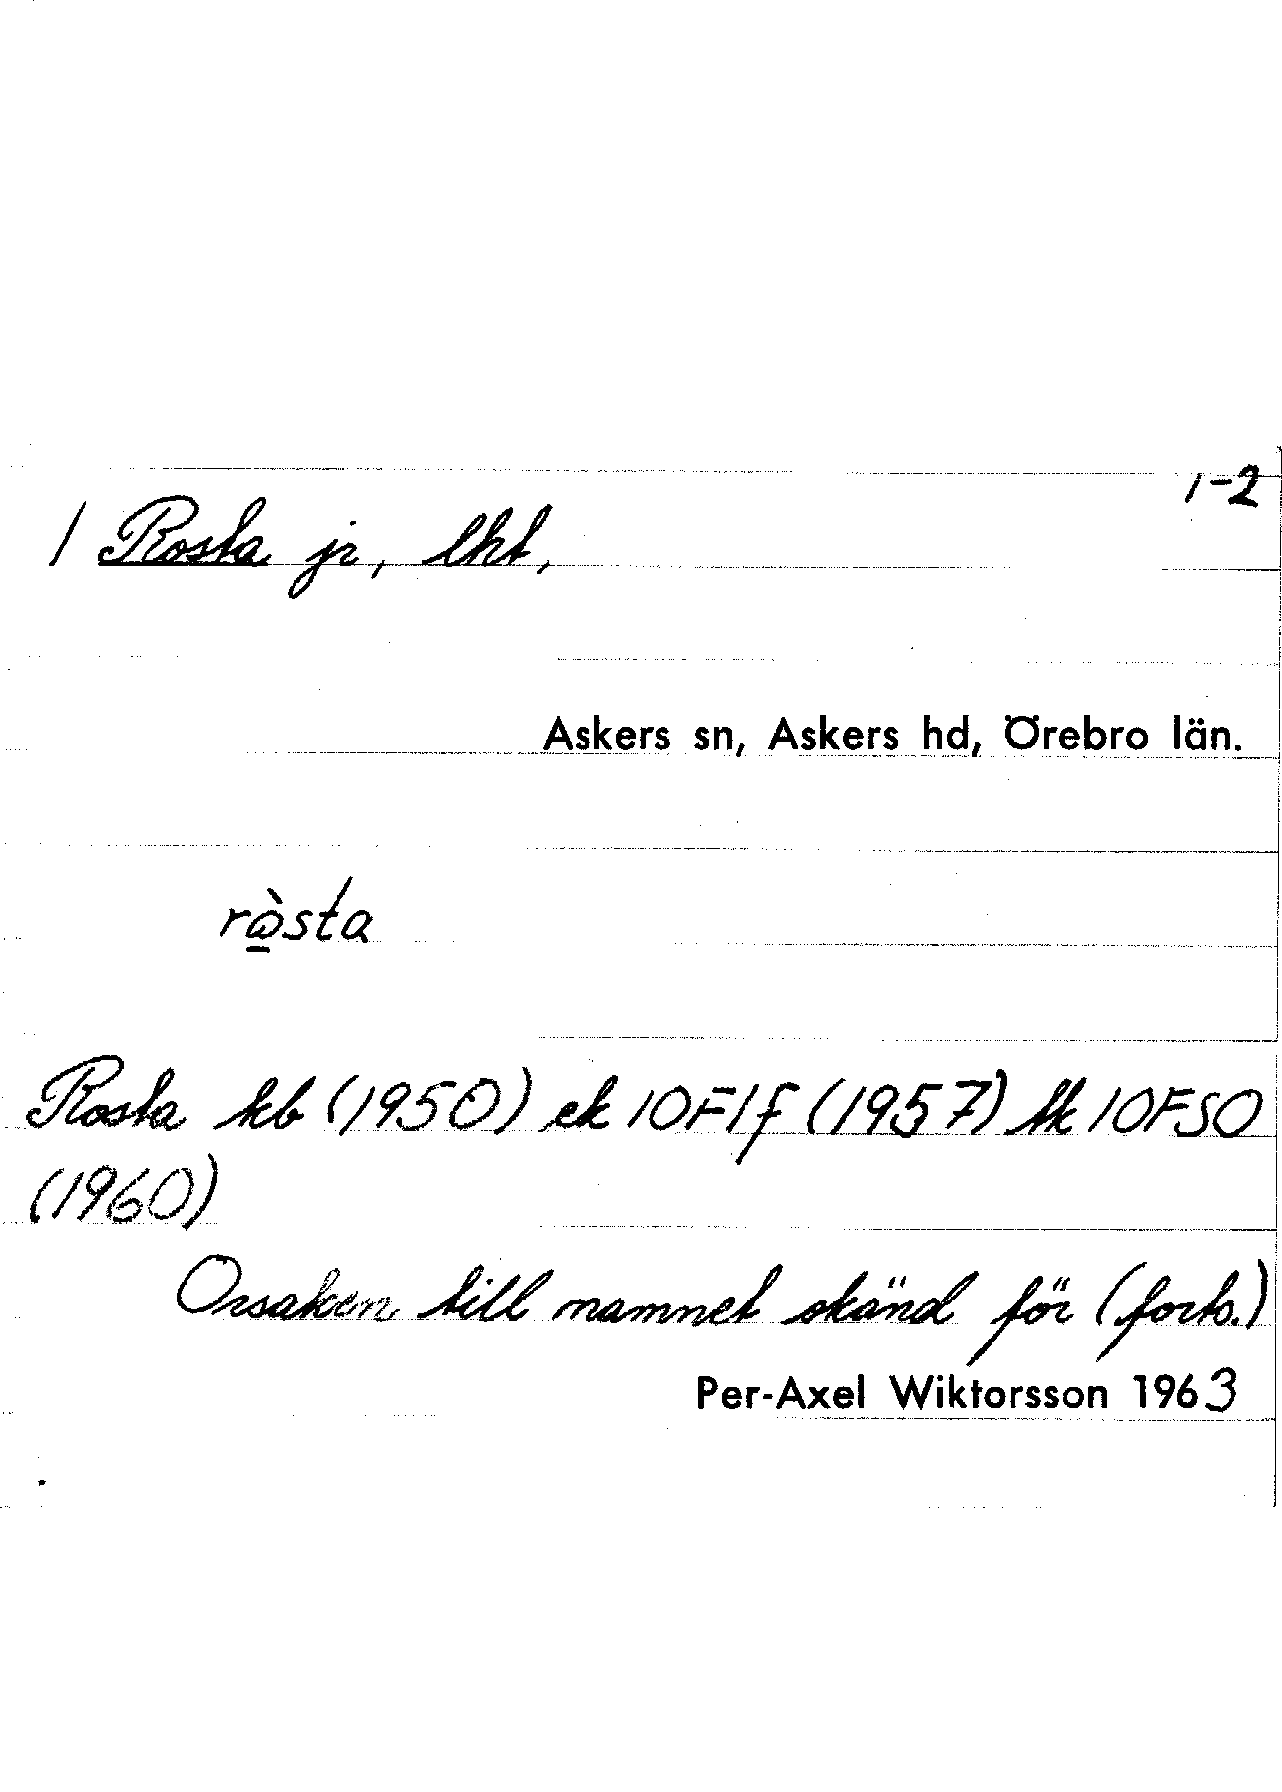 1-2
1 Rosta jr, lht,
Askers sn, Askers hd, Örebro län.
ròsta
Rosta kb (1950) ek 10F1f (1957) tk 10FSO
(1960)
Orsaken till namnet okänd för (forts.)
Per-Axel Wiktorsson 1963